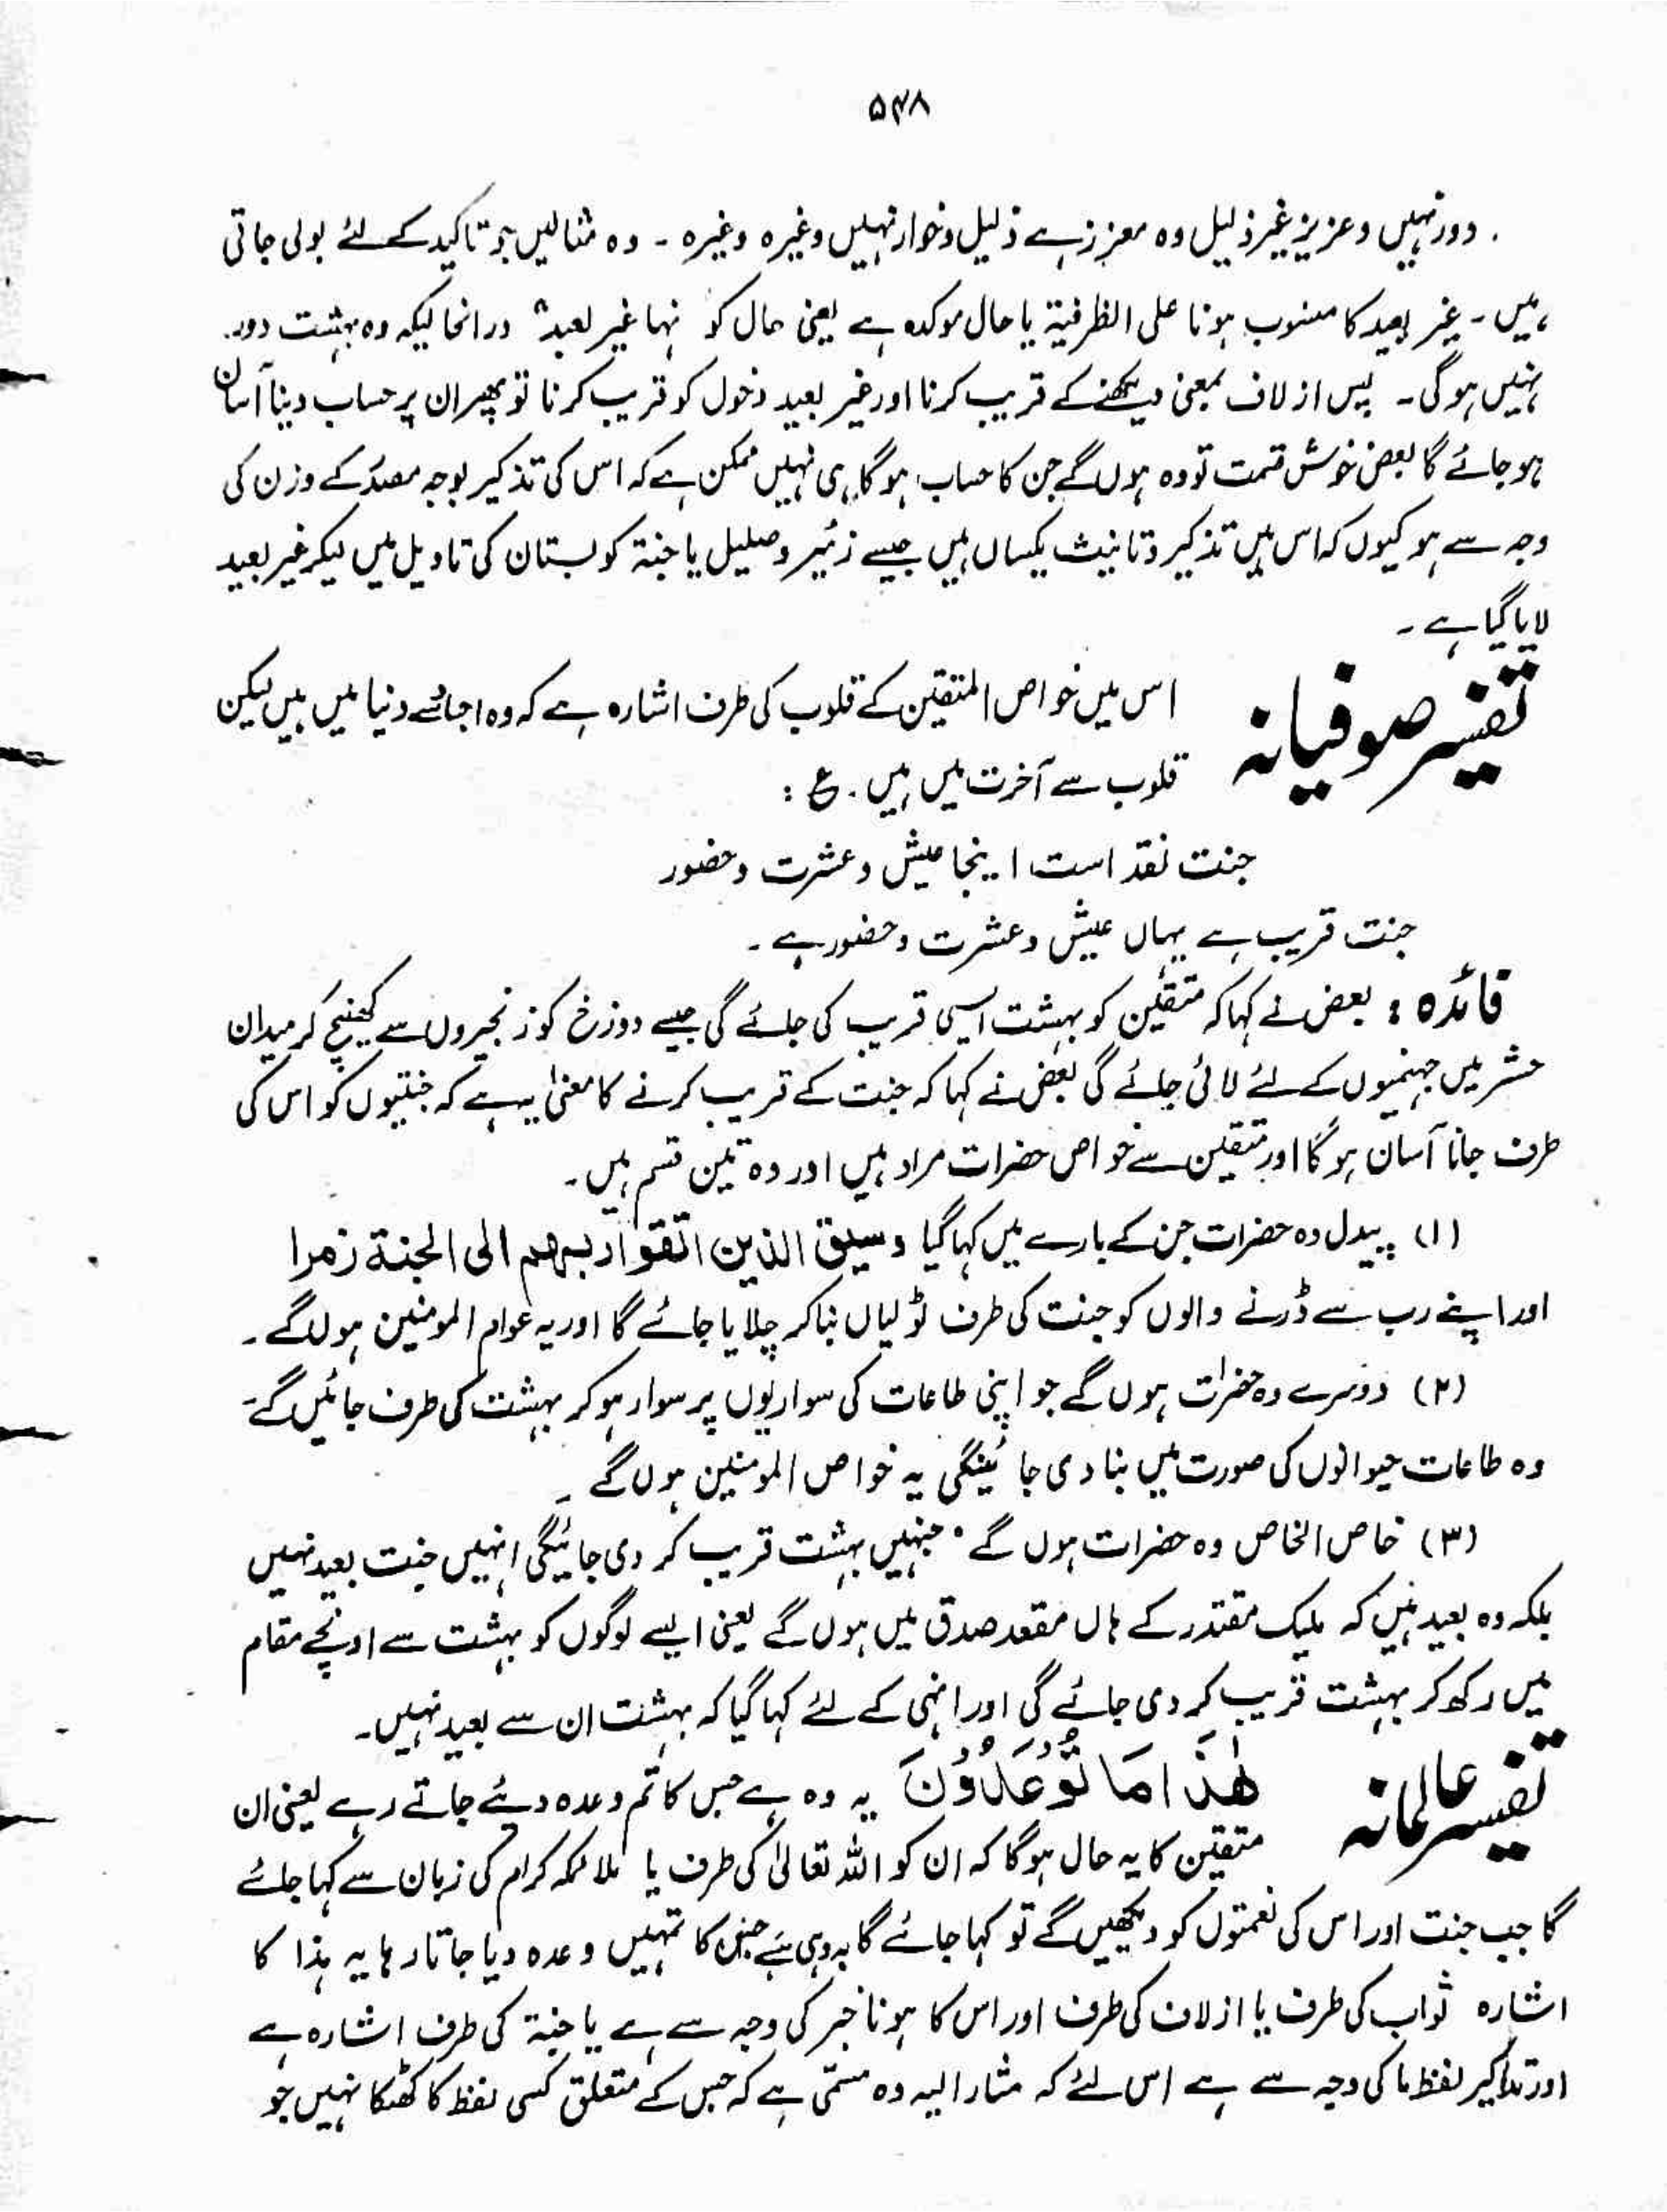 ۵۴۸
دور نہیں وعزیز غیر ذلیل وہ معزز ہے ذلیل وخوار نہیں وغیرہ وغیرہ ۔ وہ مثالیں جو تاکید کے لئے بولی جاتی
ہیں ۔ غیر بعید کا منسوب ہونا علی الظرفیۃ یا حال موکدہ ہے یعنی حال کو نہا غیر بعید درانحالیکہ وہ بہشت دور
نہیں ہوگی ۔ پس ازلاف بمعنی دیکھنے کے قریب کرنا اور غیر بعید دخول کو قریب کرنا تو پھر ان پر حساب دینا آسان
ہو جائے گا بعض خوش قسمت تو وہ ہوں گے جن کا حساب ہوگا ہی نہیں ممکن ہے کہ اس کی تذکیر بوجہ مصدر کے وزن کی
وجہ سے ہو کیوں کہ اس میں تذکیر وتانیث یکساں ہیں جیسے زئیر وصلیل یا جنۃ کو بستان کی تاویل میں لیکر غیر بعید
لایا گیا ہے ۔
تفسیر صوفیانہ اس میں خواص المتقین کے قلوب کی طرف اشارہ ہے کہ وہ اجسام سے دنیا میں ہیں لیکن
قلوب سے آخرت میں ہیں ۔ ع :
جنت نقد است اینجا عیش وعشرت وحضور
جنت قریب ہے یہاں عیش وعشرت وحضور ہے ۔
فائدہ : بعض نے کہا کہ متقین کو بہشت ایسی قریب کی جائے گی جیسے دوزخ کو زنجیروں سے کھینچ کر میدان
حشر میں جہنمیوں کے لئے لائی جائے گی بعض نے کہا کہ جنت کے قریب کرنے کا معنیٰ یہ ہے کہ جنتیوں کو اس کی
طرف جانا آسان ہوگا اور متقین سے خواص حضرات مراد ہیں اور وہ تین قسم ہیں ۔
(۱) پیدل وہ حضرات جن کے بارے میں کہا گیا وسیق الذین اتقوا ربہم الی الجنۃ زمرا
اور اپنے رب سے ڈرنے والوں کو جنت کی طرف ٹولیاں بناکر چلایا جائے گا اور یہ عوام المومنین ہوں گے ۔
(۲) دوسرے وہ حضرات ہوں گے جو اپنی طاعات کی سواریوں پر سوار ہوکر بہشت کی طرف جائیں گے ۔
وہ طاعات حیوانوں کی صورت میں بنا دی جائینگی یہ خواص المومنین ہوں گے ۔
(۳) خاص الخاص وہ حضرات ہوں گے جنہیں بہشت قریب کر دی جائیگی انہیں جنت بعید نہیں
بلکہ وہ بعید ہیں کہ ملیک مقتدر کے ہاں مقعد صدق میں ہوں گے یعنی ایسے لوگوں کو بہشت سے اونچے مقام
میں رکھ کر بہشت قریب کر دی جائے گی اور انہی کے لئے کہا گیا کہ بہشت ان سے بعید نہیں ۔
تفسیر عالمانہ هٰذَا مَا تُوْعَدُوْنَ یہ وہ ہے جس کا تم وعدہ دیئے جاتے رہے یعنی ان
متقین کا یہ حال ہوگا کہ ان کو اللہ تعالیٰ کی طرف یا ملائکہ کرام کی زبان سے کہا جائے
گا جب جنت اور اس کی نعمتوں کو دیکھیں گے تو کہا جائے گا یہ وہی ہے جس کا تمہیں وعدہ دیا جاتا رہا یہ ہذا کا
اشارہ ثواب کی طرف یا ازلاف کی طرف اور اس کا ہونا خبر کی وجہ سے ہے یا جنۃ کی طرف اشارہ ہے
اور تذکیر لفظ ما کی وجہ سے ہے اس لئے کہ مشار الیہ وہ مسمّٰی ہے کہ جس کے متعلق کسی لفظ کا کھٹکا نہیں جو